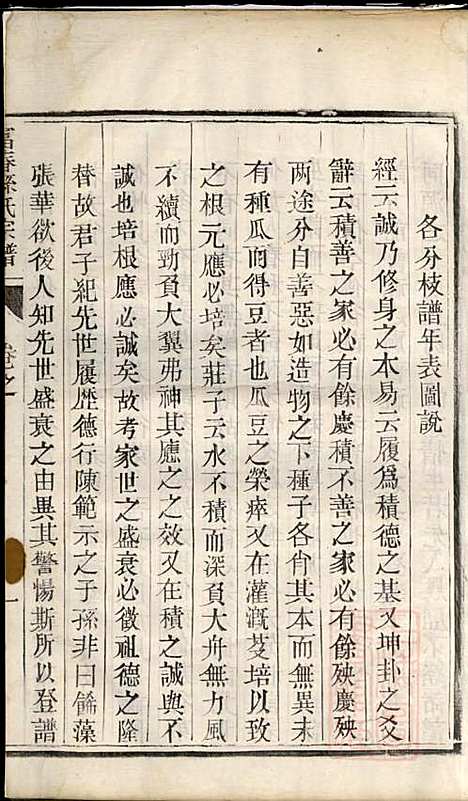 各分枝譜年表圖說
經云誠乃修身之本易云履爲積德之基又坤卦之爻
辭云積善之家必有餘慶積不善之家必有餘殃慶殃
两途分自善惡如造物之下種子各肖其本而無異未
有種瓜而得豆者也瓜豆之榮瘁又在灌溉芟培以致
之根元應必培矣莊子云水不積而深負大舟無力風
不續而勁負大翼弗神其應之之效又在積之誠與不
誠也培根應必誠矣故考家世之盛衰必徵祖德之隆
替故君子紀先世履歷德行陳範示之子孫非曰飾藻
張華欲後人知先世盛衰之由異其警惕斯所以登譜
富春孫氏宗譜
卷之
一